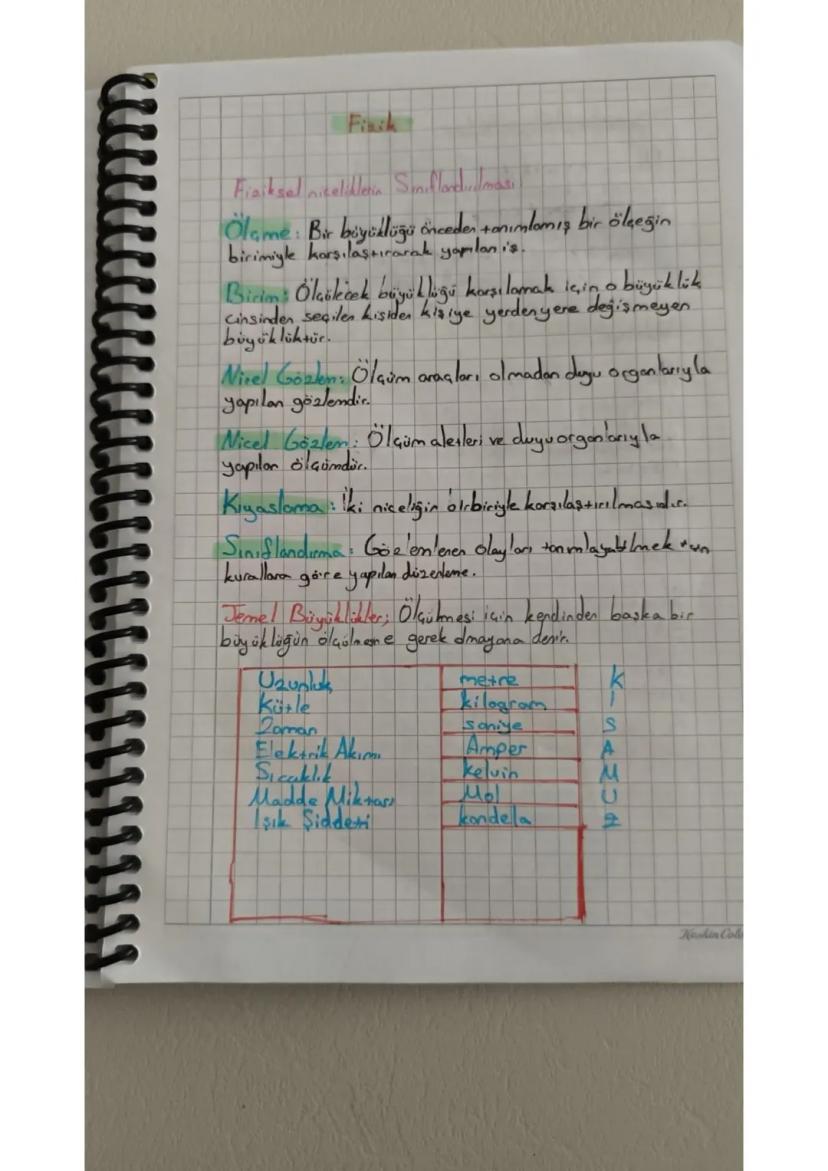 Fizik
Fiziksel niceliklerin Sınıflandırılması
Ölçme: Bir büyüklüğü önceden tanımlamış bir ölçeğin
birimiyle karşılaştırarak yapılan iş.
Birim: Ölçülecek büyüklüğü karşılamak için o büyüklük
cinsinden seçilen kişiden kişiye yerden yere değişmeyen
büyüklüktür.
Nitel Gözlem: Ölçüm araçları olmadan duyu organlarıyla
yapılan gözlemdir.
Nicel Gözlem: Ölçüm aletleri ve duyu organlarıyla
yapılan ölçümdür.
Kıyaslama: İki niceliğin birbiriyle karşılaştırılmasıdır.
Sınıflandırma: Gözlemlenen olayları tanımlayabilmek
kurallara göre yapılan düzenleme.
Temel Büyüklükler; Ölçülmesi için kendinden başka bir
büyüklüğün ölçülmesine gerek olmayana denir.
Uzunluk metre K
Kütle kilogram I
Zaman saniye S
Elektrik Akımı Amper A
Sıcaklık kelvin M
Madde Miktarı Mol U
Işık Şiddeti kandela Z